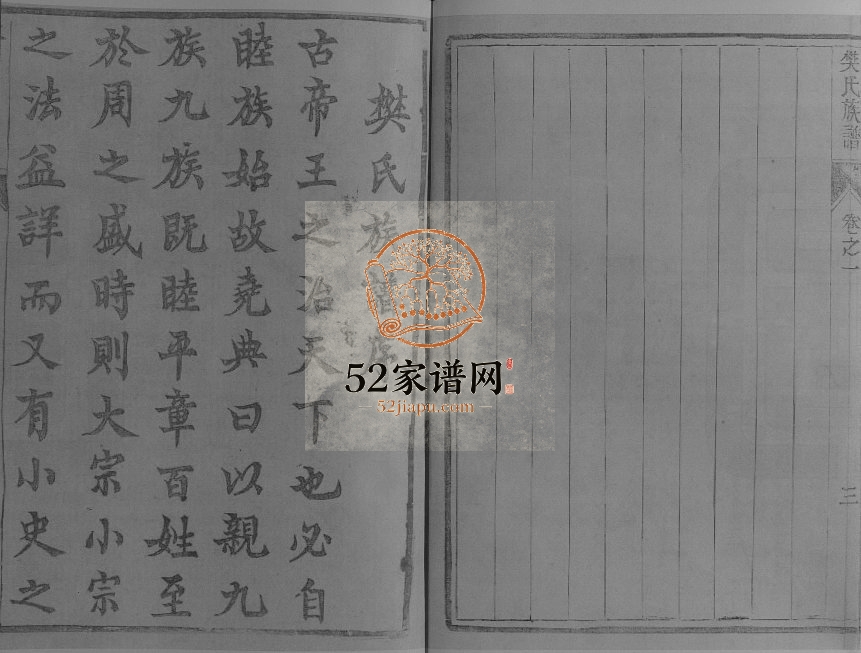 樊氏族譜
卷之一
三
樊氏族譜序
古帝王之治天下也必自
睦族始故堯典曰以親九
族九族既睦平章百姓至
於周之盛時則大宗小宗
之法益詳而又有小史之
52家谱网
52jiapu.com